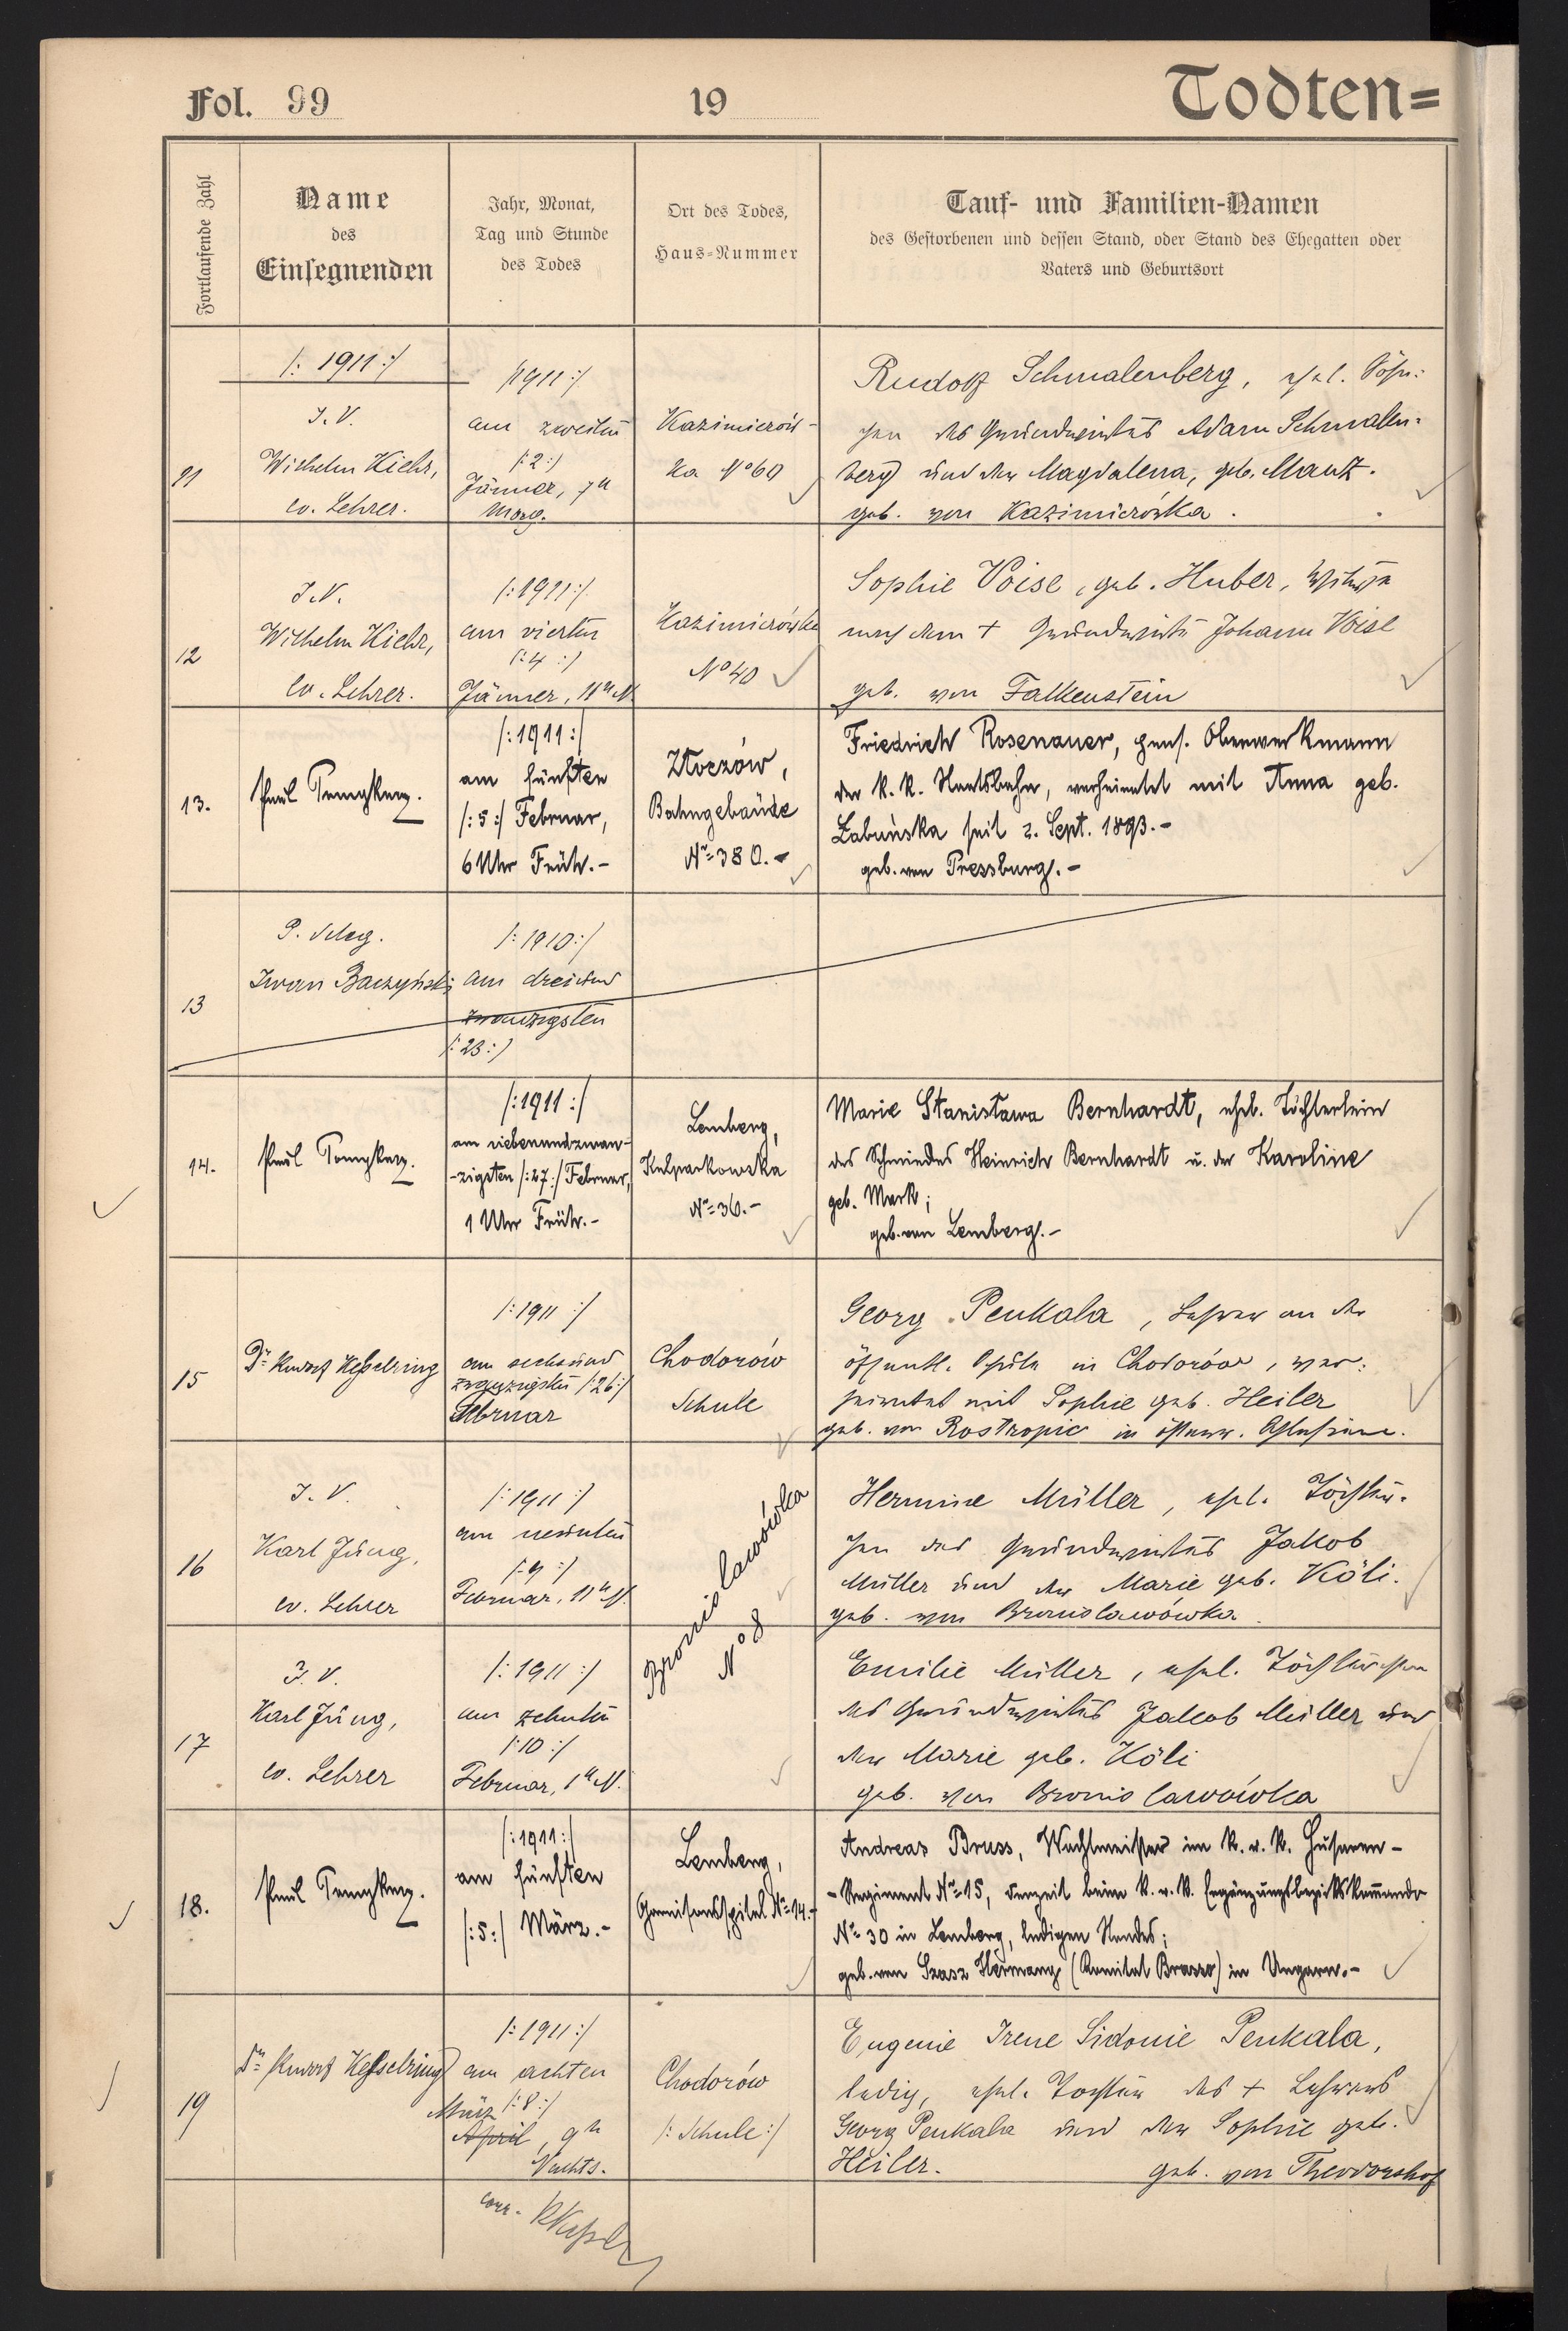 Fol. 99
19
Todten=
Fortlaufende Zahl
Name
des
Einsegnenden
Jahr, Monat,
Tag und Stunde
des Todes
Ort des Todes,
Haus-Nummer
Tauf- und Familien-Namen
des Gestorbenen und dessen Stand, oder Stand des Ehegatten oder
Vaters und Geburtsort
/: 1911 :/
11
I. V.
Wilhelm Kiehr,
ev. Lehrer.
/1911 :/
am zweiten
/: 2 :/
Jänner, 7 u
Morg.
Kazimierów-
ka No 69
Rudolf Schmalenberg, ehel. Söhn:
chen des Grundwirtes Adam Schmalen-
berg und der Magdalena, geb. Mautz.
geb. von Kazimierówka.
12
I. V.
Wilhelm Kiehr,
ev. Lehrer.
/: 1911 :/
am vierten
/: 4 :/
Jänner, 11 u N.
Kazimierówka
No 40
Sophie Voise, geb. Huber, Witwe
nach dem + Grundwirte Johann Voise
geb. von Falkenstein
13.
Paul
/: 1911 :/
am fünften
/: 5 :/ Februar,
6 Uhr Früh. -
Złoczów,
Bahngebäude
No = 380. -
Friedrich Rosenauer, pens. Oberwerkmann
der k. k. Staatsbahn, verheiratet mit Anna geb.
Łabuńska seit 2. Sept. 1893. -
geb. von Pressburg. -
13
Iwan Baczyński
/: 1910 :/
am dreiund
zwanzigsten
/: 23 :/
14.
Paul
/: 1911 :/
am siebenundzwan-
-zigsten /: 27 :/ Februar,
1 Uhr Früh. -
Lemberg,
Kulparkowska
No = 36. -
Marie Stanisława Bernhardt, ehel. Töchterlein
des Schmiedes Heinrich Bernhardt u. der Karoline
geb. Mark;
geb. von Lemberg. -
15
Dr Kesselring
/: 1911 :/
am sechsund
zwanzigsten /: 26 :/
Februar
Chodorów
Schule
Georg Penkala, Lehrer an der
öffentl. Schule in Chodorów, ver:
heiratet mit Sophie geb. Heiler
geb. von Rostropic in österr. Schlesien.
16
I. V.
Karl Jung,
ev. Lehrer
/: 1911 :/
am neunten
/: 9 :/
Februar, 11 u N.
Bronislawówka
No 8
Hermine Müller, ehel. Töchter-
chen des Grundwirtes Jakob
Müller und der Marie geb. Köli.
geb. von Bronislawówka.
17
I. V.
Karl Jung,
ev. Lehrer
/: 1911 :/
am zehnten
/: 10 :/
Februar, 1 u N.
Emilie Müller, ehel. Töchterchen
des Grundwirtes Jakob Müller und
der Marie geb. Köli
geb. von Bronislawówka
18.
Paul
/: 1911 :/
am fünften
/: 5 :/ März. -
Lemberg,
Garnisonsspital No = 14. -
Andreas Bruss, Wachtmeister im k. u. k. Husaren-
- Regiment No = 15, derzeit beim k. u. k. Ergänzungsbezirkskommando
No = 30 in Lemberg, ledigen Standes;
geb. von Szasz Hermany (Komitat Brasso) in Ungarn. -
19
Dr Kesselring
/: 1911 :/
am achten
März /: 8 :/
April, 9 h
Nachts.
Chodorów
/: Schule :/
Eugenie Irene Sidonie Penkala,
ledig, ehel. Tochter des + Lehrers
Georg Penkala und der Sophie geb.
Heiler. geb. von Theodorshof
corr.